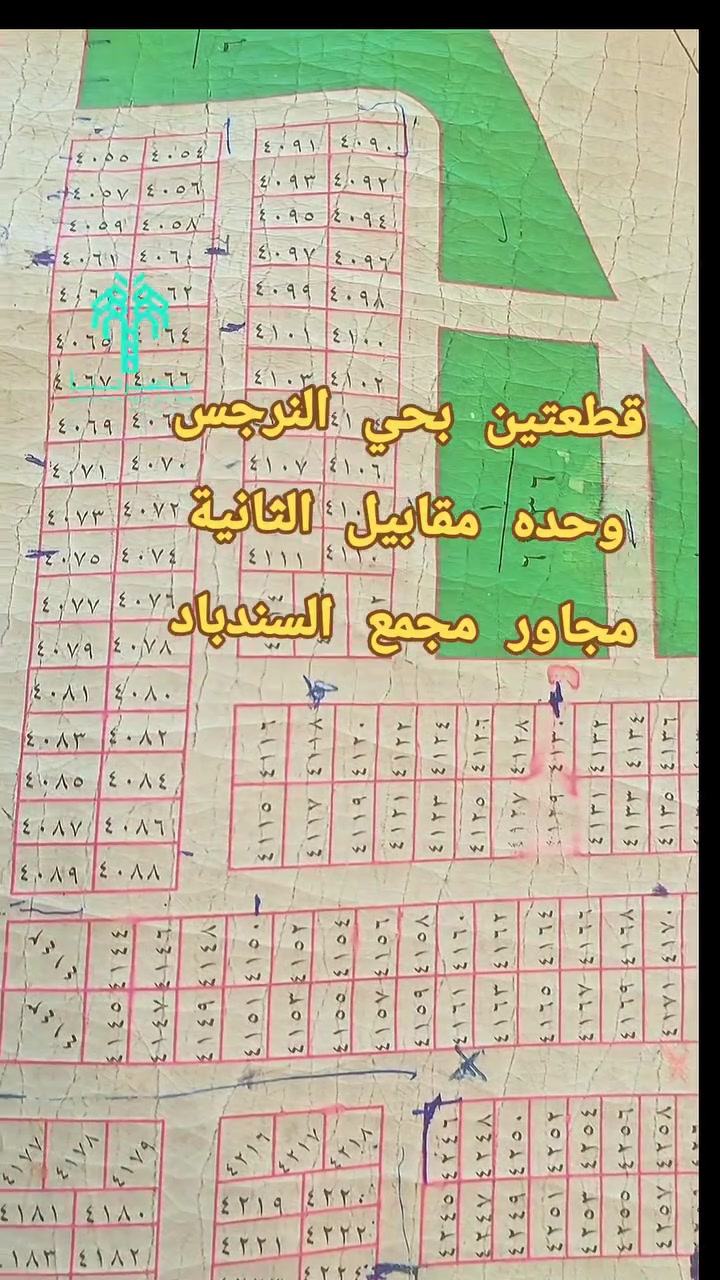 قطعتين بحي النرجس
وحده مقابيل الثانية
مجاور مجمع السندباد
٤٠٥٥ ٤٠٥٤
٤٠٥٧ ٤٠٥٦
٤٠٥٩ ٤٠٥٨
٤٠٦١ ٤٠٦٠
٤٠٦٥
٤٠٦٧ ٤٠٦٦
٤٠٦٩
٤٠٧١ ٤٠٧٠
٤٠٧٣ ٤٠٧٢
٤٠٧٥ ٤٠٧٤
٤٠٧٧ ٤٠٧٦
٤٠٧٩ ٤٠٧٨
٤٠٨١ ٤٠٨٠
٤٠٨٣ ٤٠٨٢
٤٠٨٥ ٤٠٨٤
٤٠٨٧ ٤٠٨٦
٤٠٨٩ ٤٠٨٨
٤٠٩١ ٤٠٩٠
٤٠٩٣ ٤٠٩٢
٤٠٩٥ ٤٠٩٤
٤٠٩٧ ٤٠٩٦
٤٠٩٩ ٤٠٩٨
٤١٠١ ٤١٠٠
٤١٠٣ ٤١٠٢
٤١٠٧ ٤١٠٦
٤١١١ ٤١١٠
٤١١٦ ٤١١٨ ٤١٢٠ ٤١٢٢ ٤١٢٤ ٤١٢٦ ٤١٢٨ ٤١٣٠ ٤١٣٢ ٤١٣٤ ٤١٣٦
٤١١٥ ٤١١٧ ٤١١٩ ٤١٢١ ٤١٢٣ ٤١٢٥ ٤١٢٧ ٤١٢٩ ٤١٣١ ٤١٣٣ ٤١٣٥
٤١٤٤ ٤١٤٦ ٤١٤٧ ٤١٥٠ ٤١٥٢ ٤١٥٤ ٤١٥٦ ٤١٥٨ ٤١٦٠ ٤١٦٢ ٤١٦٤ ٤١٦٦ ٤١٦٨ ٤١٧٠
٤١٤٥ ٤١٤٨ ٤١٤٩ ٤١٥١ ٤١٥٣ ٤١٥٥ ٤١٥٧ ٤١٥٩ ٤١٦١ ٤١٦٣ ٤١٦٥ ٤١٦٧ ٤١٦٩ ٤١٧١
٤١٧٧ ٤١٧٨ ٤١٧٩
٤١٨١ ٤١٨٠
٤١٨٢
٤٢١٦ ٤٢١٧ ٤٢١٨
٤٢١٩ ٤٢٢٠
٤٢٢١ ٤٢٢٢
٤٢٤٦ ٤٢٤٨ ٤٢٥٠ ٤٢٥٢ ٤٢٥٤ ٤٢٥٦
٤٢٤٥ ٤٢٤٧ ٤٢٤٩ ٤٢٥١ ٤٢٥٣ ٤٢٥٥ ٤٢٥٧